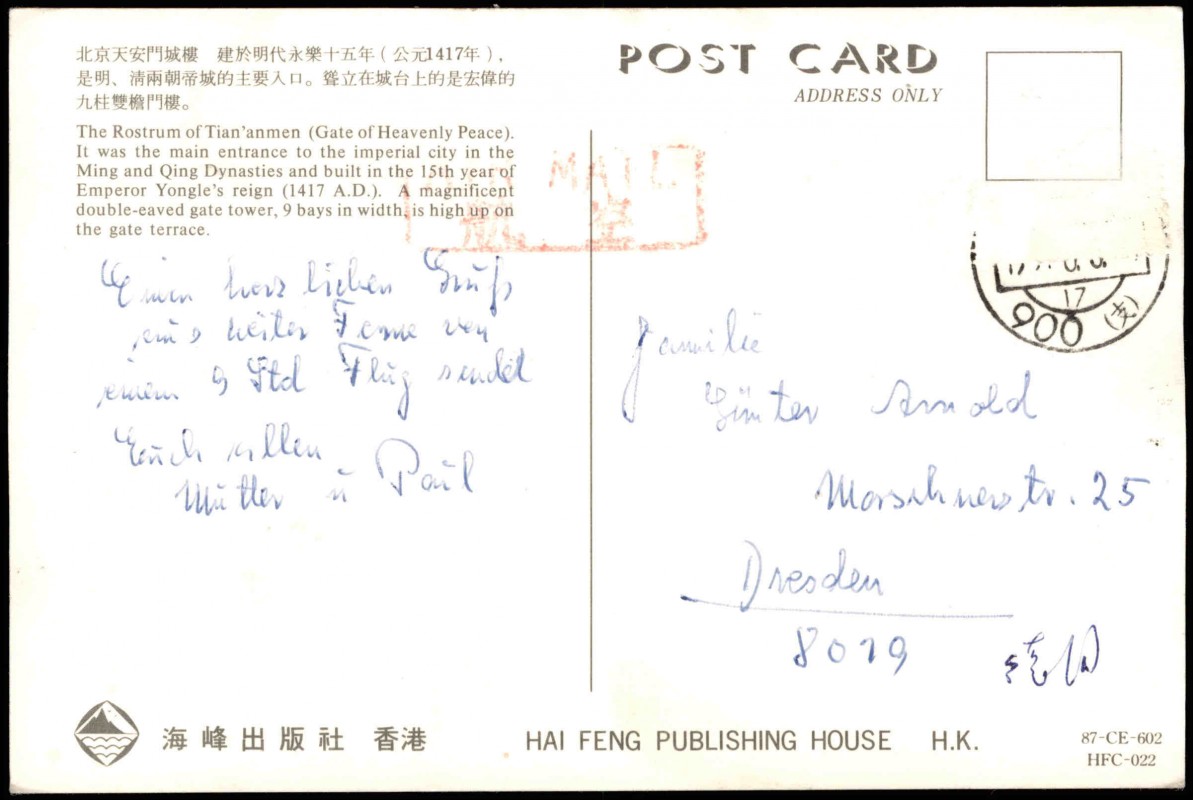 北京天安門城樓　建於明代永樂十五年（公元1417年），
是明、清兩朝帝城的主要入口。聳立在城台上的是宏偉的
九柱雙檐門樓。
The Rostrum of Tian'anmen (Gate of Heavenly Peace).
It was the main entrance to the imperial city in the
Ming and Qing Dynasties and built in the 15th year of
Emperor Yongle's reign (1417 A.D.). A magnificent
double-eaved gate tower, 9 bays in width, is high up on
the gate terrace.
Einen herzlichen Gruß
aus weiter Ferne von
einem 9 Std Flug sendet
Euch allen
Mutter u Paul
POST CARD
ADDRESS ONLY
AIR MAIL
航 空
17
900 (支)
Familie
Günter Arnold
Morschnerstr. 25
Dresden
8019
德国
海峰出版社 香港
HAI FENG PUBLISHING HOUSE H.K.
87-CE-602
HFC-022